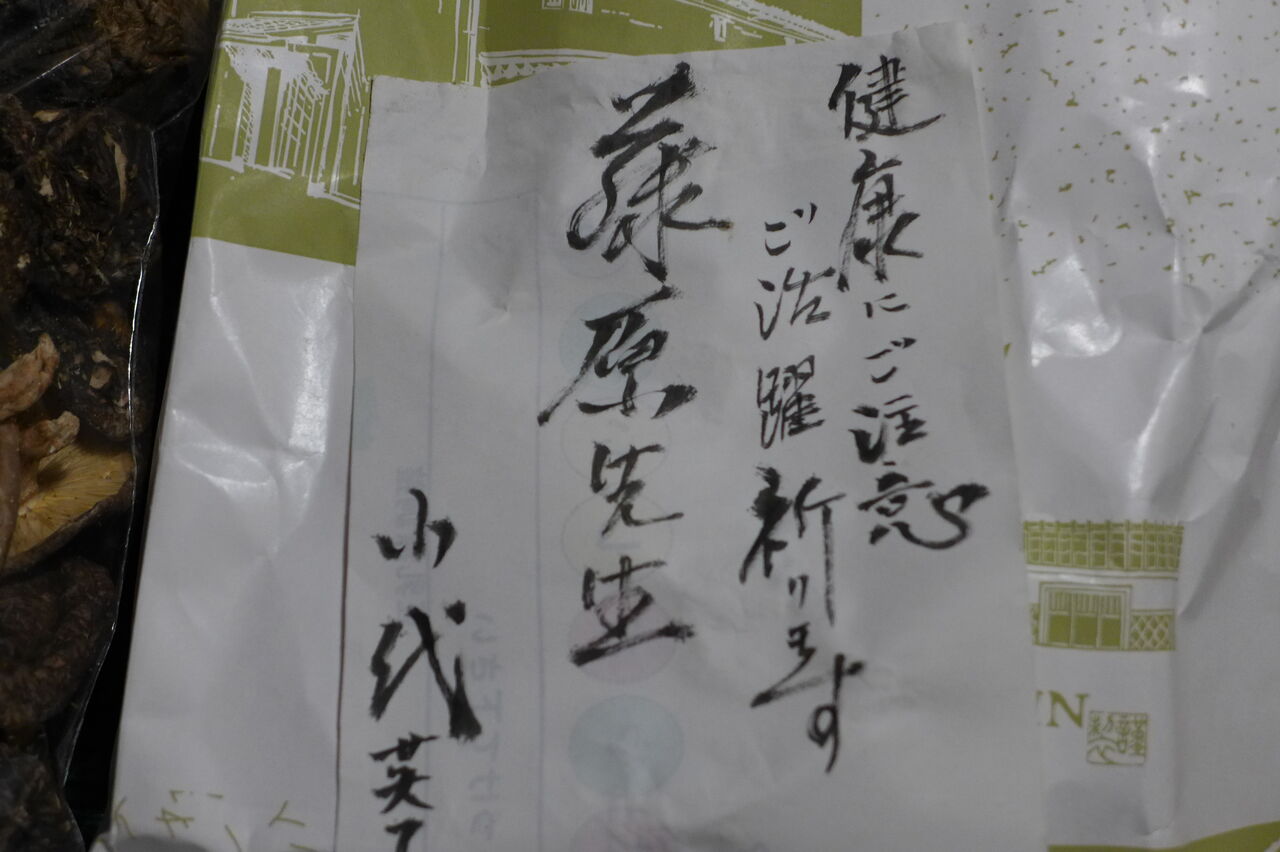 健康にご注意
ご活躍祈ります
藤原先生
小代英
IN